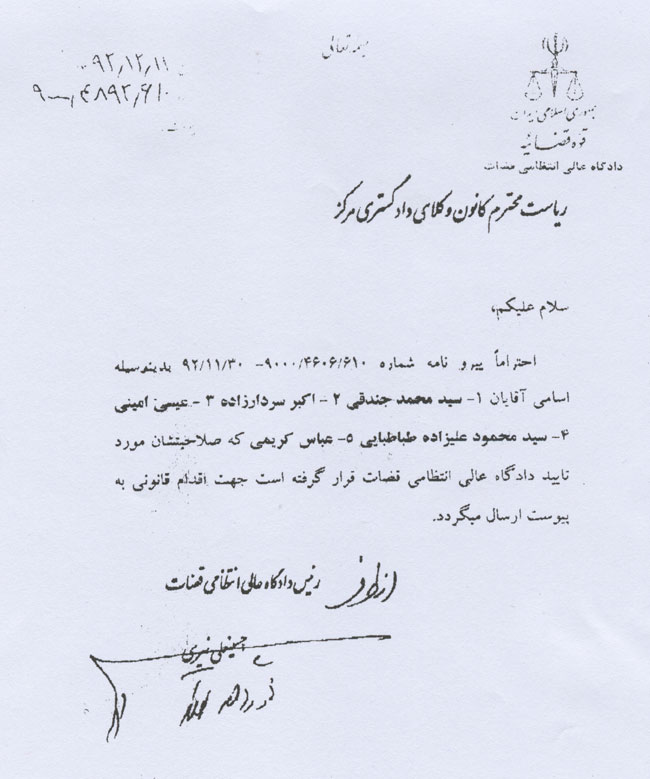 بسمه تعالی
۹۲٫۱۲٫۱۱
۹۰۰۰٫۴۸۹۲٫۶۱۰
جمهوری اسلامی ایران
قوه قضائیه
دادگاه عالی انتظامی قضات
ریاست محترم کانون وکلای دادگستری مرکز
سلام علیکم،
احتراماً پیرو نامه شماره ۹۰۰۰/۴۶۰۶/۶۱۰- ۹۲/۱۱/۳۰ بدینوسیله
اسامی آقایان ۱- سید محمد جندقی ۲- اکبر سردارزاده ۳- عیسی امینی
۴- سید محمود علیزاده طباطبایی ۵- عباس کریمی که صلاحیتشان مورد
تایید دادگاه عالی انتظامی قضات قرار گرفته است جهت اقدام قانونی به
پیوست ارسال میگردد.
از طرف رئیس دادگاه عالی انتظامی قضات
حسینعلی نیری